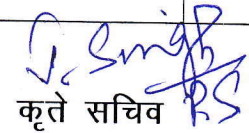 J. Singh
कृते सचिव RS